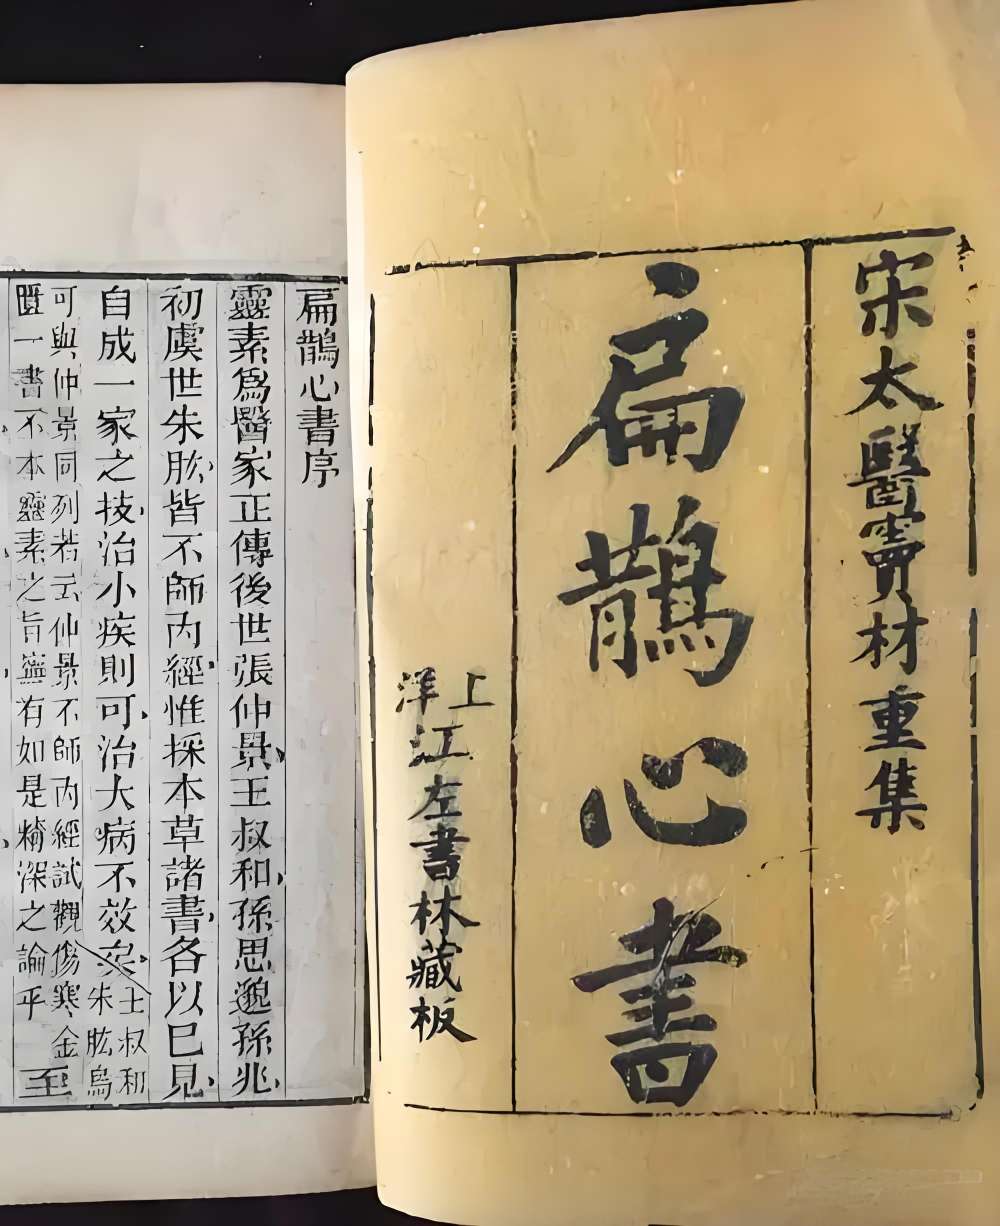 宋太醫竇材重集
扁鵲心書
上洋江左書林藏板
扁鵲心書序
靈素爲醫家正傳後世張仲景王叔和孫思邈孫兆
初虞世朱肱皆不師內經惟採本草諸書各以巳見
自成一家之技治小疾則可治大病不效矣王叔和朱肱烏
可與仲景同列若云仲景不師內經試觀傷寒金
匱一書不本靈素之旨寧有如是精深之論乎至